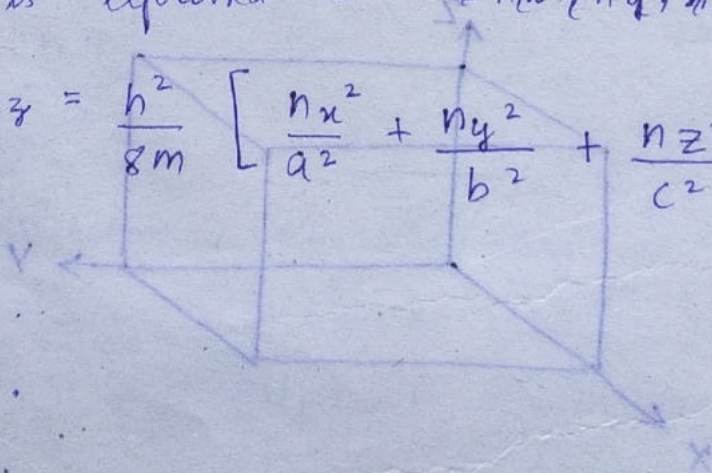 is
z = h² / 8m [ nx² / a² + ny² / b² + nz² / c²
Y
X